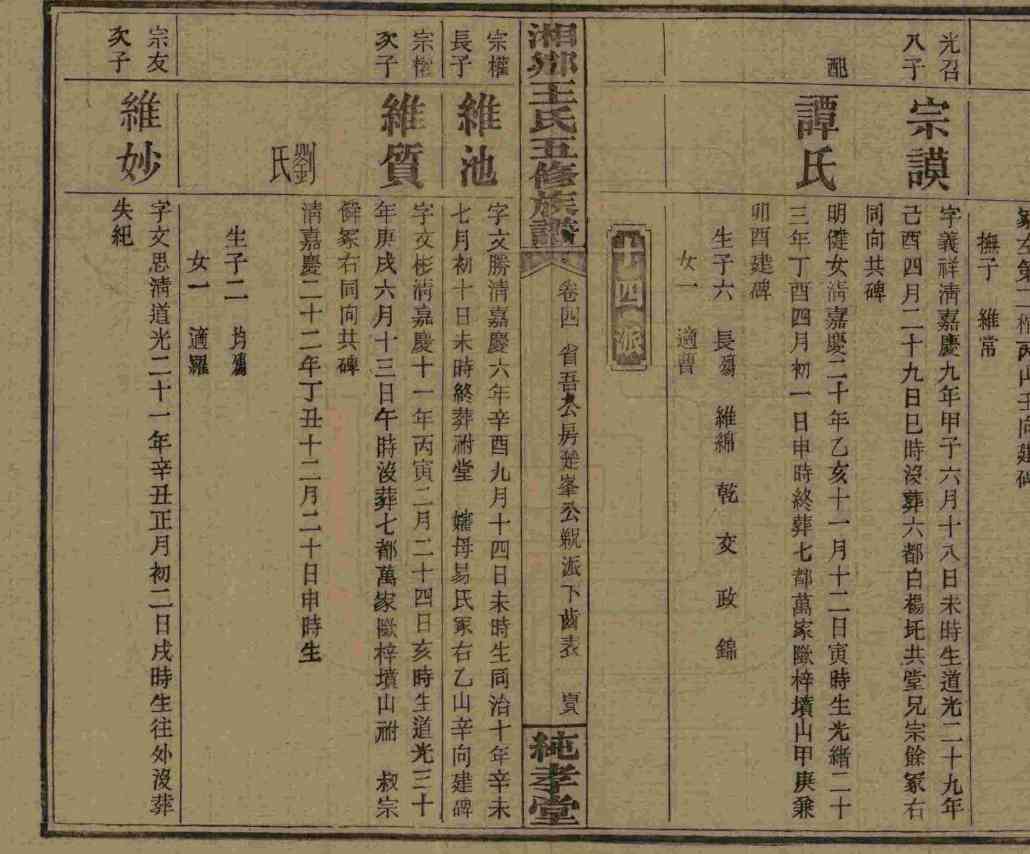 撫子 維常
光召
八子
宗謨
字義祥淸嘉慶九年甲子六月十八日未時生道光二十九年
己酉四月二十九日巳時沒葬六都白楊坵共堂兄宗餘冢右
同向共碑
配
譚氏
明健女淸嘉慶二十年乙亥十一月十二日寅時生光緒二十
三年丁酉四月初一日申時終葬七都萬家歐梓墳山甲庚兼
卯酉建碑
生子六 長殤 維綿 乾 交 政 錦
女一 適曹
十四派
湘鄉王氏五修族譜
卷四 省吾公房 峯公親派下齒表
純孝堂
宗權
長子
維池
字文勝淸嘉慶六年辛酉九月十四日未時生同治十年辛未
七月初十日未時終葬祔堂 嬸母易氏冢右乙山辛向建碑
宗
次子
維質
字文彬淸嘉慶十一年丙寅二月二十四日亥時生道光三十
年庚戌六月十三日午時沒葬七都萬家歐梓墳山祔 叔宗
冢右同向共碑
劉氏
淸嘉慶二十二年丁丑十二月二十日申時生
生子二 均殤
女一 適羅
宗友
次子
維妙
字文思淸道光二十一年辛丑正月初二日戌時生往外沒葬
失紀